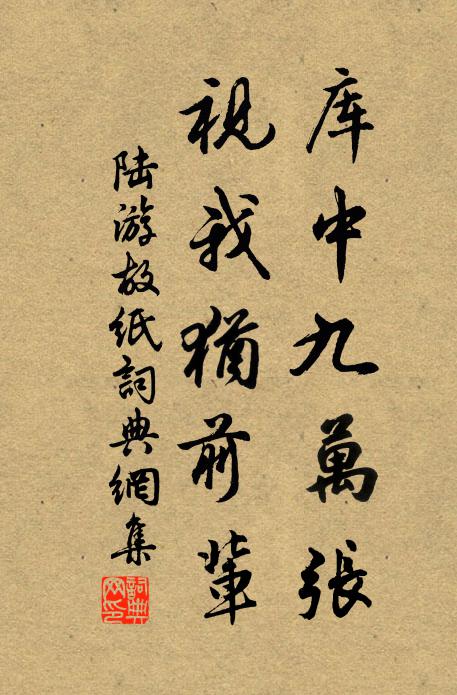 库中九萬張
視我猶前輩
陆游故纸詞典網集
詞典网印